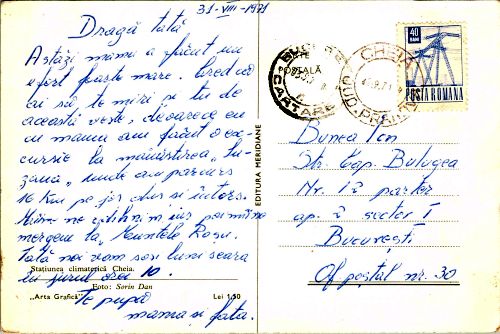 31-VIII-1971
Dragă tată
Astăzi mama a făcut un
efort foarte mare. Cred că
ai să te miri și tu de
această veste, deoarece eu
cu mama am făcut o ex-
cursie la mănăstirea "Su-
zana" unde am parcurs
16 km pe jos dus și întors.
Mâine ne odihnim iar poimâine
mergem la "Muntele Roșu.
Tată noi vom sosi luni seara
în jurul orei 10.
Te pupă
mama și fata.
Stațiunea climaterică Cheia.
Foto: Sorin Dan
„Arta Grafică" Lei 1,50
EDITURA MERIDIANE
BUCUREȘTI
CARTARE
CHEIA
JUD. PRAHOVA
40
BANI
POSTA ROMANA
Bunea Ion
Str. Cap. Butugea
Nr. 12 parter
ap. 2 sector I
București
Of. poștal nr. 30